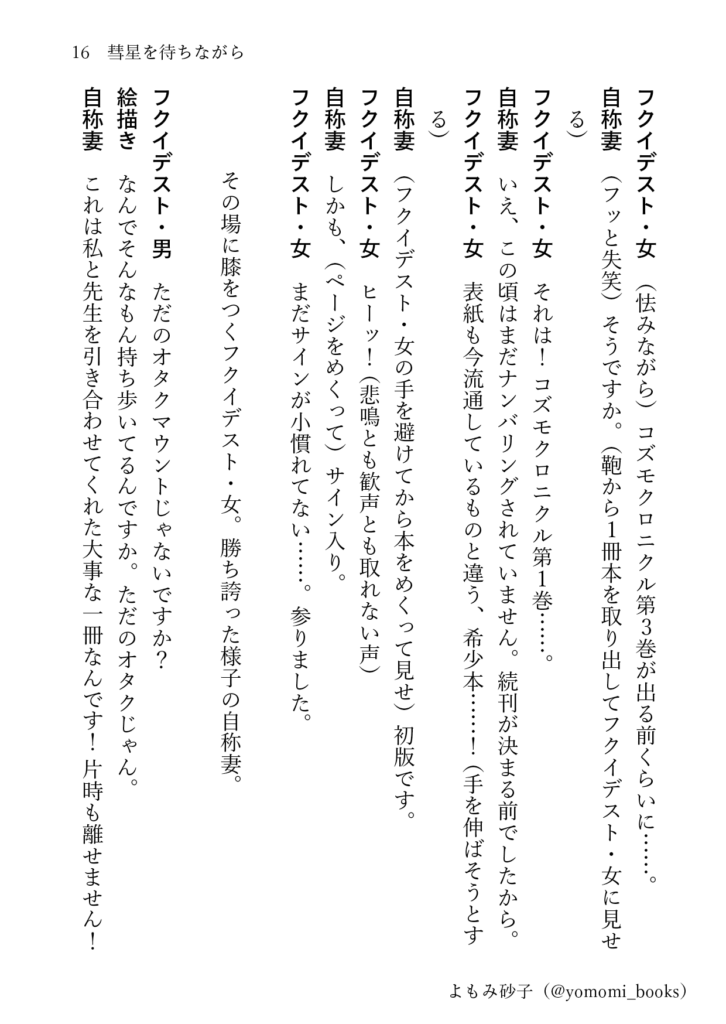 16 彗星を待ちながら
フクイデスト・女 （怯みながら）コズモクロニクル第3巻が出る前くらいに……。
自称妻 （フッと失笑）そうですか。（鞄から1冊本を取り出してフクイデスト・女に見せ
る）
フクイデスト・女 それは！ コズモクロニクル第1巻……。
自称妻 いえ、この頃はまだナンバリングされていません。続刊が決まる前でしたから。
フクイデスト・女 表紙も今流通しているものと違う、希少本……！（手を伸ばそうとす
る）
自称妻 （フクイデスト・女の手を避けてから本をめくって見せ）初版です。
フクイデスト・女 ヒーッ！（悲鳴とも歓声とも取れない声）
自称妻 しかも、（ページをめくって）サイン入り。
フクイデスト・女 まだサインが小慣れてない……。参りました。
その場に膝をつくフクイデスト・女。勝ち誇った様子の自称妻。
フクイデスト・男 ただのオタクマウントじゃないですか？
絵描き なんでそんなもん持ち歩いてるんですか。ただのオタクじゃん。
自称妻 これは私と先生を引き合わせてくれた大事な一冊なんです！ 片時も離せません！
よもみ砂子（@yomomi_books）